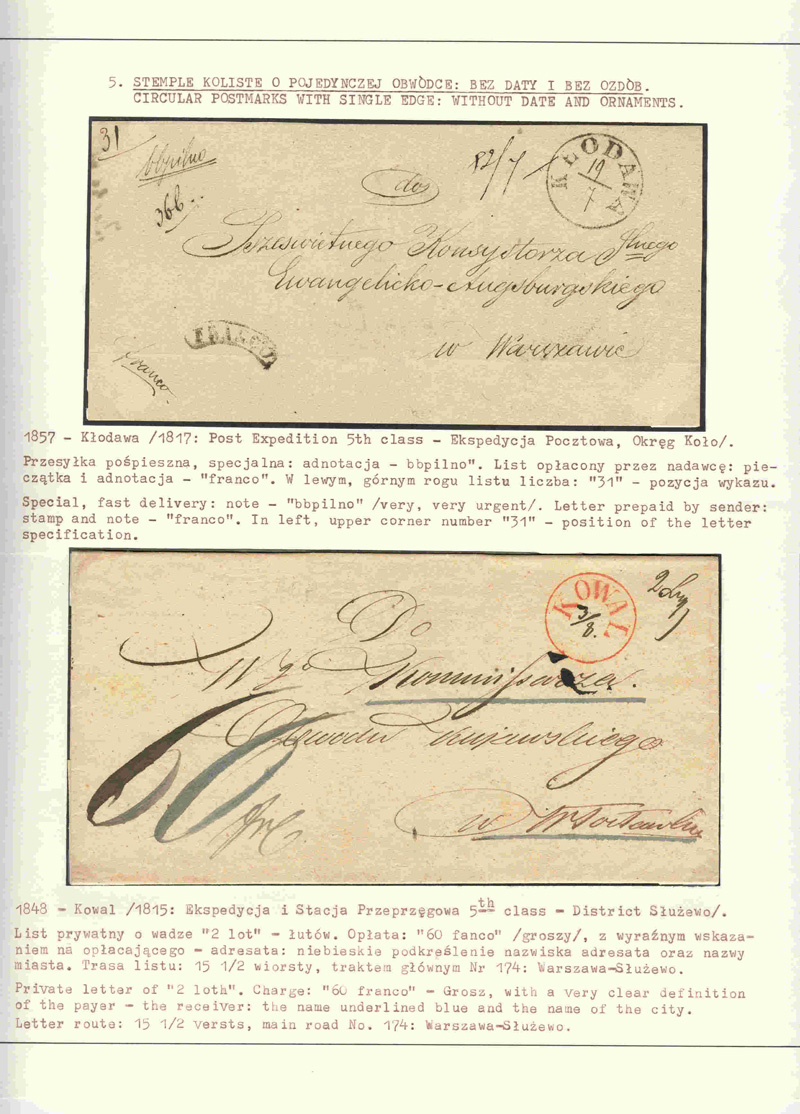 5. STEMPLE KOLISTE O POJEDYNCZEJ OBWÒDCE: BEZ DATY I BEZ OZDÒB.
CIRCULAR POSTMARKS WITH SINGLE EDGE: WITHOUT DATE AND ORNAMENTS.
31
bbpilno
KŁODAWA
19/7
366
do
Przeswietnego Konsystorza
Ewangelicko-Augsburgskiego
FRANCO
w Warszawie
franco
1857 - Kłodawa /1817: Post Expedition 5th class - Ekspedycja Pocztowa, Okręg Koło/.
Przesyłka pośpieszna, specjalna: adnotacja - bbpilno". List opłacony przez nadawcę: pie-
czątka i adnotacja - "franco". W lewym, górnym rogu listu liczba: "31" - pozycja wykazu.
Special, fast delivery: note - "bbpilno" /very, very urgent/. Letter prepaid by sender:
stamp and note - "franco". In left, upper corner number "31" - position of the letter
specification.
KOWAL
3/8.
Do
Kommissarza.
Obwodu Kujawskiego
60
w
1848 - Kowal /1815: Ekspedycja i Stacja Przeprzęgowa 5th class - District Służewo/.
List prywatny o wadze "2 lot" - łutów. Opłata: "60 fanco" /groszy/, z wyraźnym wskaza-
niem na opłacającego - adresata: niebieskie podkreślenie nazwiska adresata oraz nazwy
miasta. Trasa listu: 15 1/2 wiorsty, traktem głównym Nr 174: Warszawa-Służewo.
Private letter of "2 loth". Charge: "60 franco" - Grosz, with a very clear definition
of the payer - the receiver: the name underlined blue and the name of the city.
Letter route: 15 1/2 versts, main road No. 174: Warszawa-Służewo.